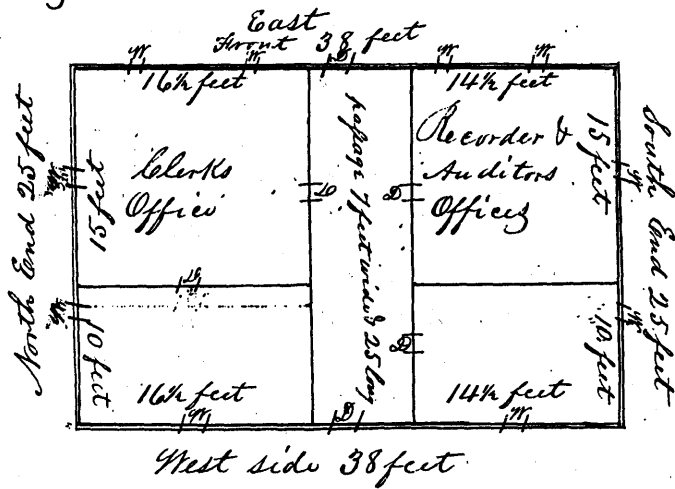 East
Front 38 feet
W
W
D
W
W
16½ feet
14½ feet
North End 25 feet
15 feet
Clerks
Office
D
passage 7 feet wide & 25 long
D
Recorder &
Auditors
Offices
15 feet
W
South End 25 feet
W
D
W
10 feet
16½ feet
W
D
D
14½ feet
W
10 feet
W
West side 38 feet